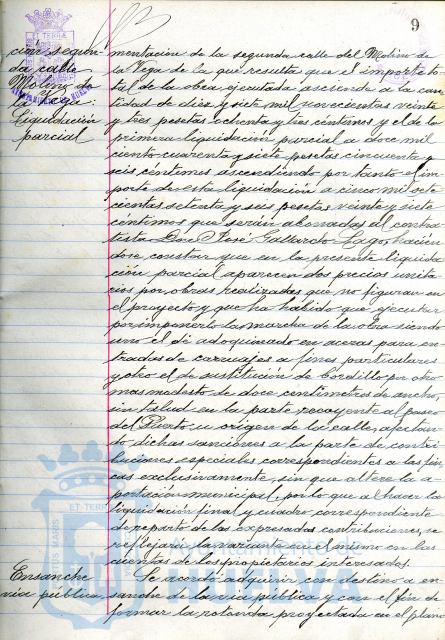 9
ción segun-
da calle
Molino de
la Vega:
Liquidación
parcial
mentación de la segunda calle del Molino de
la Vega de la que resulta que el importe to-
tal de la obra ejecutada asciende a la can-
tidad de diez y siete mil novecientas veinte
y tres pesetas ochenta y tres céntimos y el de la
primera liquidación parcial a doce mil
ciento cuarenta y siete pesetas cincuenta y
seis céntimos ascendiendo por tanto el im-
porte de esta liquidación a cinco mil sete-
cientas setenta y seis pesetas veinte y siete
céntimos que serán abonadas al contra-
tista Don José Gallardo Lago, hacién-
dose constar que en la presente liquida-
ción parcial aparecen dos precios unita-
rios por obras realizadas que no figuran en
el proyecto y que ha habido que ejecutar
por imponerlo la marcha de la obra siendo
uno el de adoquinado en aceras para en-
tradas de carruajes a fines particulares
y otro el de sustitución de bordillo por otro
mas modesto de doce centímetros de ancho,
sin talud en la parte recayente al paseo
del Puerto u origen de la calle, afectan-
do dichas sanciones a la parte de contri-
buciones especiales correspondientes a las fin-
cas exclusivamente, sin que altere la a-
portación municipal, por lo que al hacer la
liquidación final y cuadro correspondiente
de reparto de las expresadas contribuciones, se
reflejará la variante en el mismo en las
cuentas de los propietarios interesados.
Ensanche
vía pública
Se acordó adquirir con destino a en-
sanche de la vía pública y con el fin de
formar la rotonda proyectada en el plan